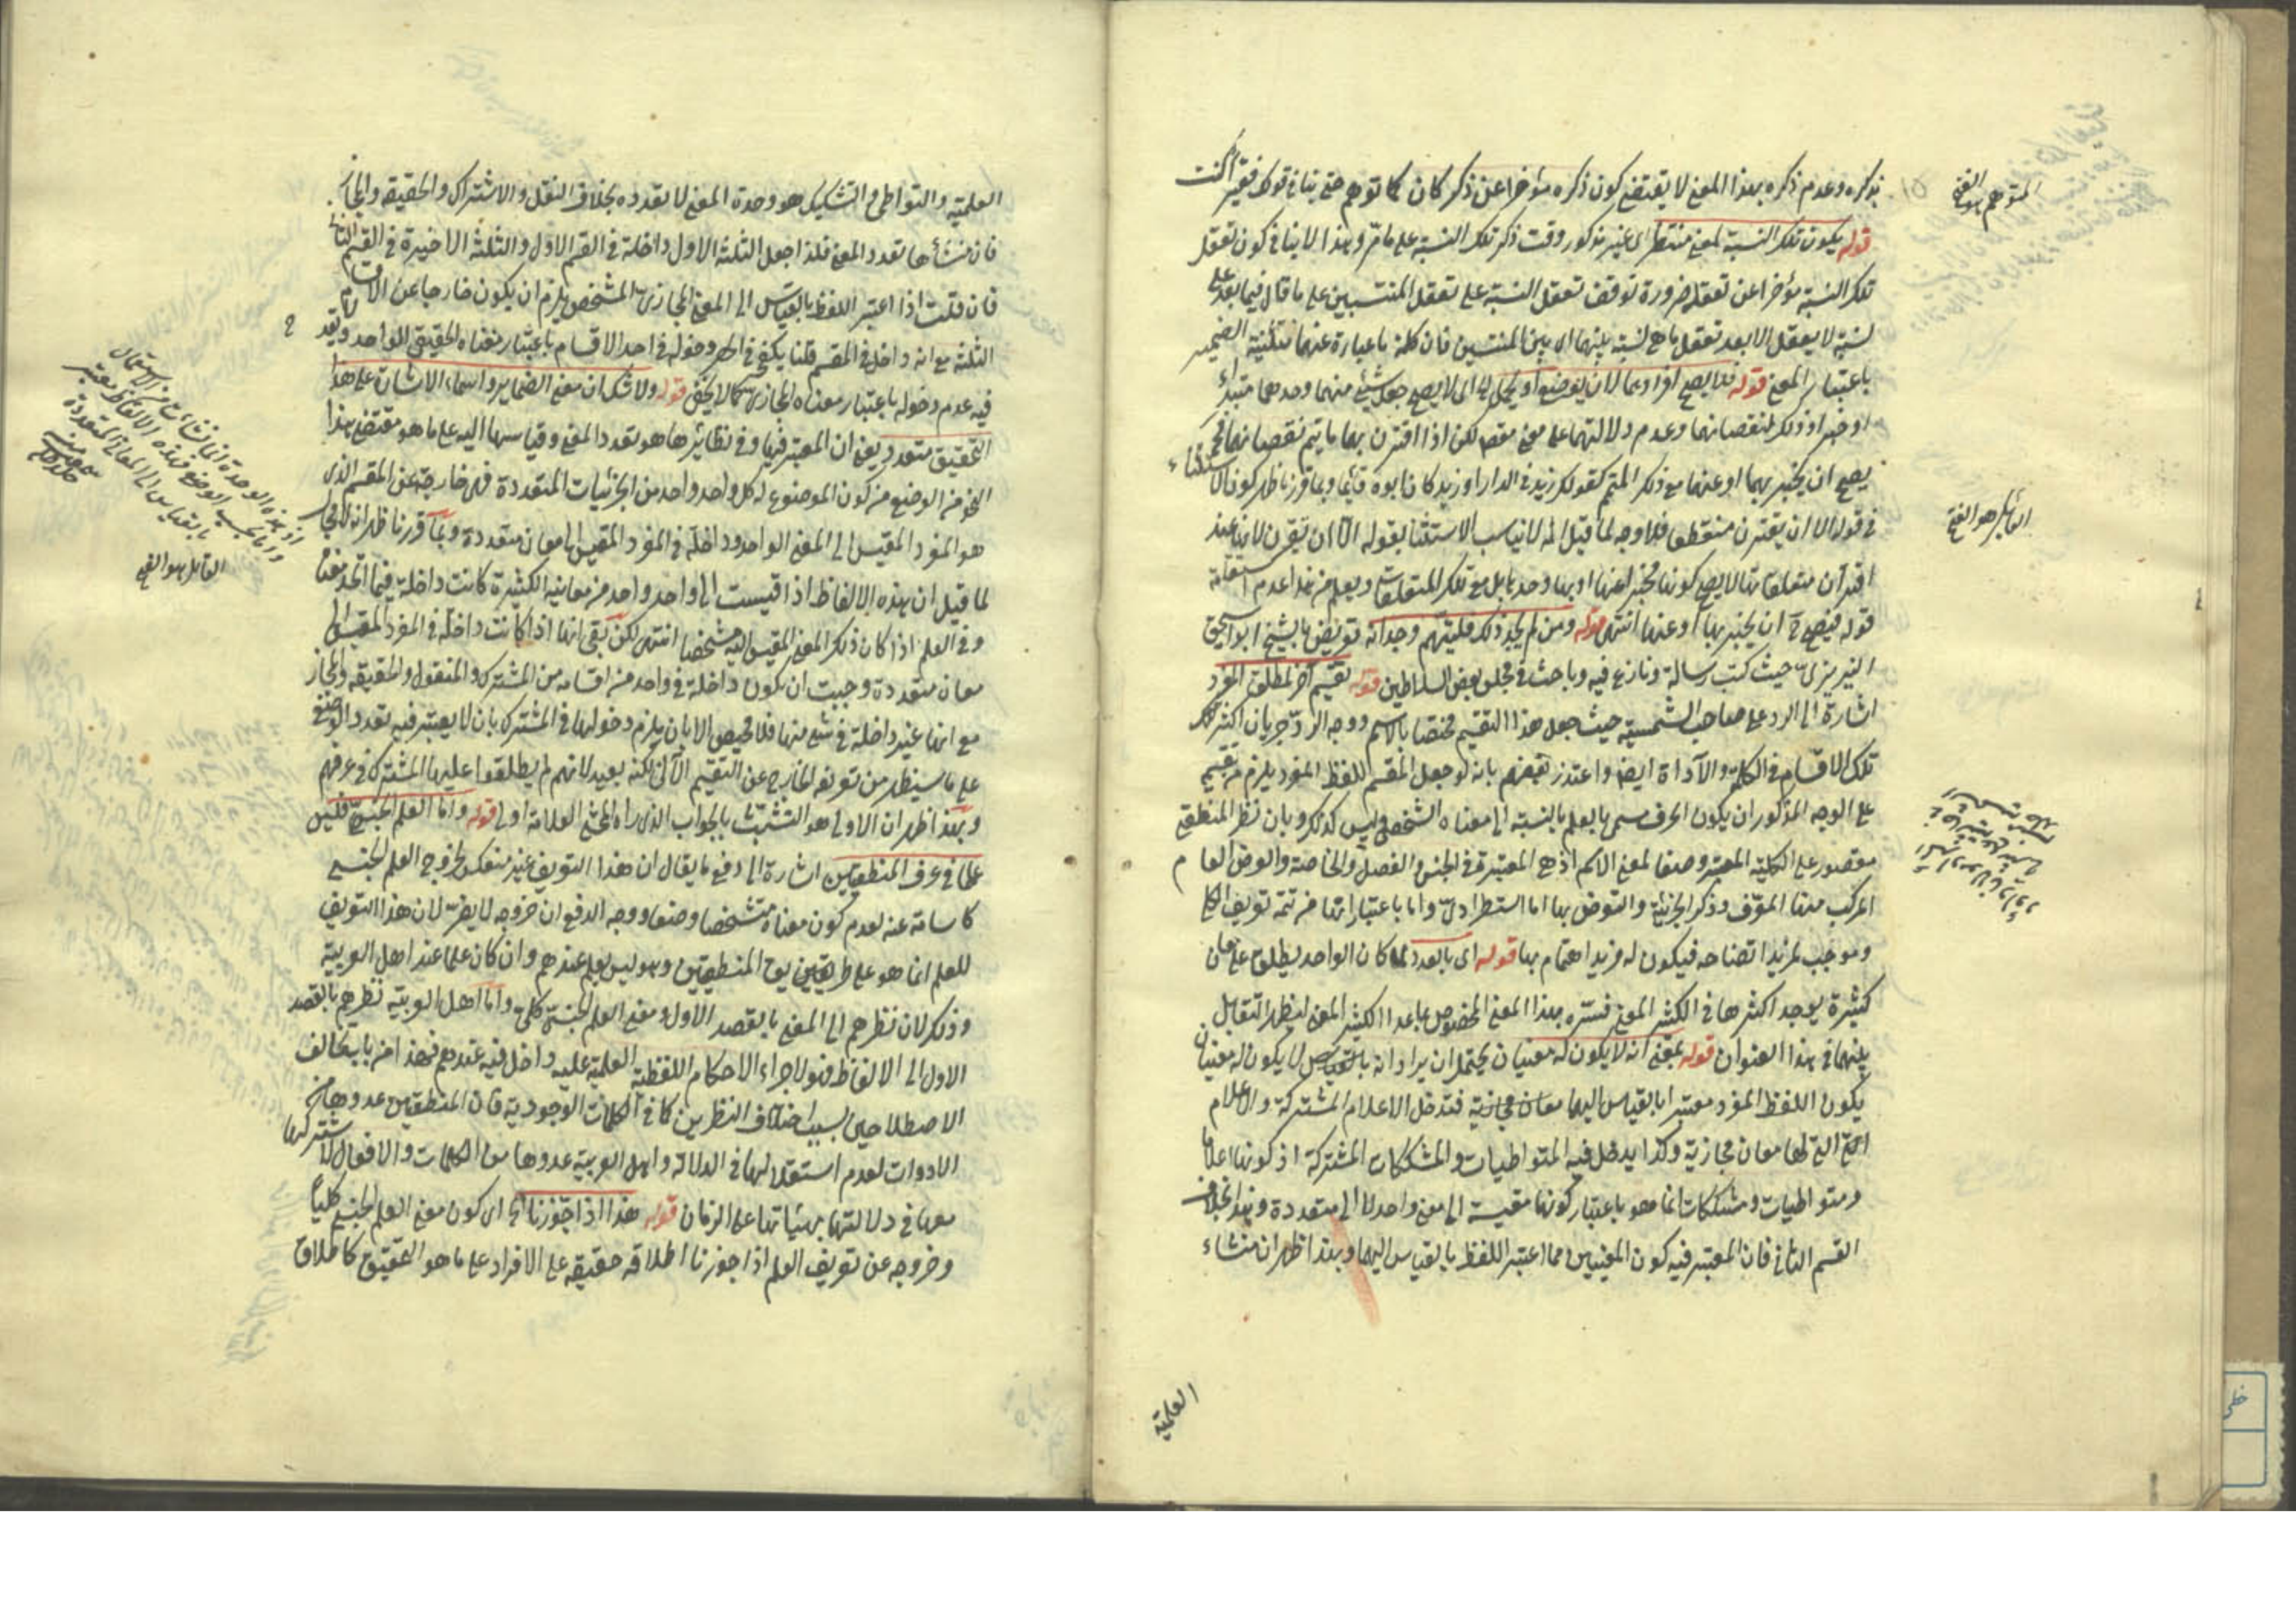 بذكره وعدم ذكره بهذا المعنى لا يقتضى كون ذكره مؤخرا عن ذكر كان كما توهم حتى ينافى قولك فقير اكنت
قوله يكون تلك النسبة لمعنى منتظر اى غير مذكور وقت ذكر تلك النسبة على ما مر وهذا لا ينافى كون تعقل
تلك النسبة مؤخرا عن تعقله ضرورة توقف تعقل النسبة على تعقل المنتسبين على ما قال فيما بعد على
نسبة لا يعقل الا بعد تعقل ما هى نسبة بينهما اى بين المنتسبين فان كلمة ما عبارة عنهما بتثنية الضمير
باعتبار المعنى قوله فلا يصح افرادهما لان يوضع او يحمل الخ اى لا يصح جعل شئ منهما وحدهما مبتداء
او خبرا وذلك لنقصانهما وعدم دلالتهما على معنى مقصد لكن اذا اقترن بهما ما يتم نقصانهما فحينئذ
يصح ان يخبر بهما او عنهما مع ذلك المتمم كقولك زيد فى الدار او زيد كان ابوه قائما وبما قررنا ظهر كون الاستثناء
فى قوله الا ان يقترن منقطعا فلا وجه لما قيل انه لا يناسب الاستثنا بقوله الا ان تقترن لانها عند
اقتران متعلقاتها لا يصح كونها مخبرا عنها او بها وحدها بل مع تلك المتعلقات ويعلم من هذا عدم استقامة
قوله فيصح ح ان يخبر بها او عنها انتهى قوله ومن لم يجد ذلك فليتهم وجدانه تعريض بالشيخ ابو اسحق
النيريزى حيث كتب رسالة ونازع فيه وباحث فى مجلس بعض السلاطين قوله تقسيم آخر لمطلق المفرد
اشارة الى الرد على صاحب الشمسية حيث جعل هذا التقسيم مختصا بالاسم ووجه الرد جريان اكثر
تلك الاقسام فى الكلمة والاداة ايضا واعتذر بعضهم بانه لو جعل المقسم اللفظ المفرد يلزم من تقسيم
على الوجه المذكور ان يكون الحرف مسمى بالعلم بالنسبة الى معناه الشخصى وليس كذلك وبان نظر المنطقى
مقصور على الكلية المعتبر وصفا لمعنى الاسم اذ هى المعتبرة فى الجنس والفصل والخاصة والعرض العام
المركب منها المعرف وذكر الجزئية والتعرض بها اما استطرادى واما باعتبار انها من تتمة تعريف الكلى
وموجب لمزيد اتضاحه فيكون له مزيد اهتمام بها قوله اى بالعدد لما كان الواحد يطلق على معان
كثيرة يوجد اكثرها فى الكثير المعنى فسره بهذا المعنى المخصوص ما عدا الكثير المعنى ليظهر التقابل
بينهما فى هذا العنوان قوله بمعنى انه لا يكون له معنيان يحتمل ان يراد انه بالقياس لا يكون له معنيان
يكون اللفظ المفرد معتبرا بالقياس اليها معان مجازية فتدخل الاعلام المشتركة والاعلام
التى لها معان مجازية وكذا يدخل فيه المتواطيات والمشككات المشتركة اذ كونها اعلاما
ومتواطيات ومشككات انما هو باعتبار كونها مقيسة الى معنى واحد لا الى متعددة وهذا بخلاف
القسم الثانى فان المعتبر فيه كون المعنيين مما اعتبر اللفظ بالقياس اليهما وبهذا ظهر ان منشاء
العلمية
المتوهم هو الفتح
القائل هو الفتح
العلمية والتواطى والتشكيك هو وحدة المعنى لا تعدده بخلاف النقل والاشتراك والحقيقة والمجاز
فان منشأها تعدد المعنى فلذا جعل الثلثة الاول داخلة فى القسم الاول والثلثة الاخيرة فى القسم الثانى
فان قلت اذا اعتبر اللفظ بالقياس الى المعنى المجازى المشخص يلزم ان يكون خارجا عن الاقسام
الثلثة مع انه داخل فى المقسم قلنا يكفى فى الحصر دخوله فى احد الاقسام باعتبار معناه الحقيقى الواحد ولا يقدح
فيه عدم دخوله باعتبار معناه المجازى كما لا يخفى قوله ولا شك ان معنى الضماير واسماء الاشارة على هذا
التحقيق متعدد يعنى ان المعتبر فيها وفى نظائرها هو تعدد المعنى وقياسها اليه على ما هو مقتضى هذا
النحو من الوضع من كون الموضوع له كل واحد واحد من الجزئيات المتعددة فهى خارجة عن المقسم الذى
هو المفرد المقيس الى المعنى الواحد وداخلة فى المفرد المقيس الى معان متعددة وبما قررنا ظهر انه لا مجال
لما قيل ان هذه الالفاظ اذا قيست الى واحد واحد من معانيه الكثيرة كانت داخلة فيما اتحد معناه
وفى العلم اذا كان ذلك المعنى المقيس اليه مشخصا انتهى لكن بقى انها اذا كانت داخلة فى المفرد المقيس الى
معان متعددة وجبت ان تكون داخلة فى واحد من اقسامه من المشترك والمنقول والحقيقة والمجاز
مع انها غير داخلة فى شئ منها فلا محيص الا بان يلزم دخولها فى المشترك بان لا يعتبر فيه تعدد الوضع
على ما سيظهر من تعريفه الخارج عن التقسيم الآتى لكنه بعيد لانهم لم يطلقوا عليها المشترك فى عرفهم
وبهذا ظهر ان الاولى هو التشبث بالجواب الذى رآه المحشى العلامة اولى قوله واما العلم الجنسى فليس
علما فى عرف المنطقيين اشارة الى دفع ما يقال ان هذا التعريف غير منعكس لخروج العلم الجنسى
كاسامة عنه لعدم كون معناه مشخصا وضعا ووجه الدفع ان خروجه لا يضر لان هذا التعريف
للعلم انما هو على طريقة المنطقيين وهو ليس بعلم عندهم وان كان علما عند اهل العربية
وذلك لان نظرهم الى المعنى بالقصد الاول ومعنى العلم الجنسى كلى واما اهل العربية نظرهم بالقصد
الاول الى الالفاظ فهو لاجراء الاحكام اللفظية العلمية عليه داخل فيه عندهم فهذا من باب تخالف
الاصطلاحين بسبب اختلاف النظرين كما فى الكلمات الوجودية فان المنطقيين عدوها من
الادوات لعدم استقلالها فى الدلالة واهل العربية عدوها من الكلمات والافعال لاشتراكها
معها فى دلالتها بهيئاتها على الزمان قوله هذا اذا جوزنا الخ اى كون معنى العلم الجنسى كليا
وخروجه عن تعريف العلم اذا جوزنا اطلاقه حقيقة على الافراد على ما هو التحقيق كاطلاق
القائل هو الفتح